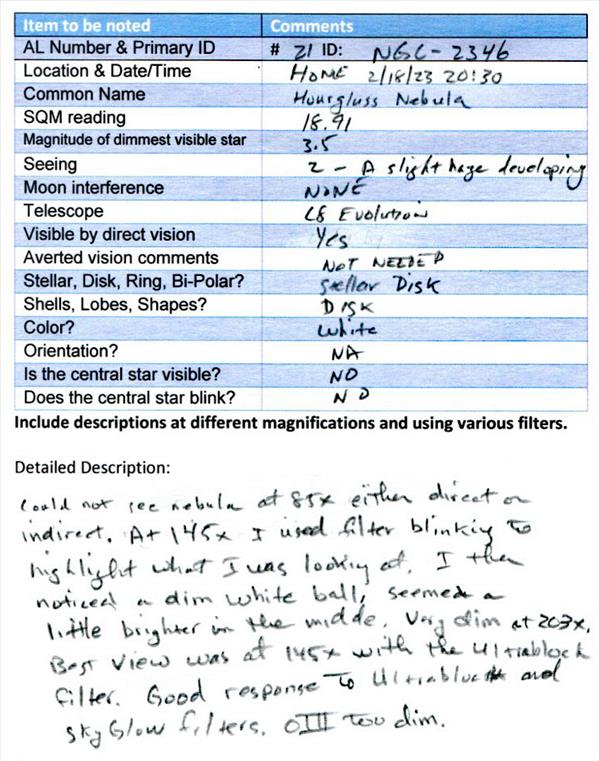 Item to be noted Comments
AL Number & Primary ID # 21 ID: NGC-2346
Location & Date/Time HOME 2/18/23 20:30
Common Name Hourglass Nebula
SQM reading 18.91
Magnitude of dimmest visible star 3.5
Seeing 2 - A slight haze developing
Moon interference NONE
Telescope C8 Evolution
Visible by direct vision Yes
Averted vision comments NOT NEEDED
Stellar, Disk, Ring, Bi-Polar? Stellar Disk
Shells, Lobes, Shapes? DISK
Color? White
Orientation? NA
Is the central star visible? NO
Does the central star blink? NO
Include descriptions at different magnifications and using various filters.
Detailed Description:
Could not see nebula at 85x either direct or
indirect. At 145x I used filter blinking to
highlight what I was looking at. I then
noticed a dim white ball, seemed a
little brighter in the midde. Very dim at 203x.
Best view was at 145x with the Ultrablock
filter. Good response to Ultrablock and
SkyGlow filters. OIII too dim.